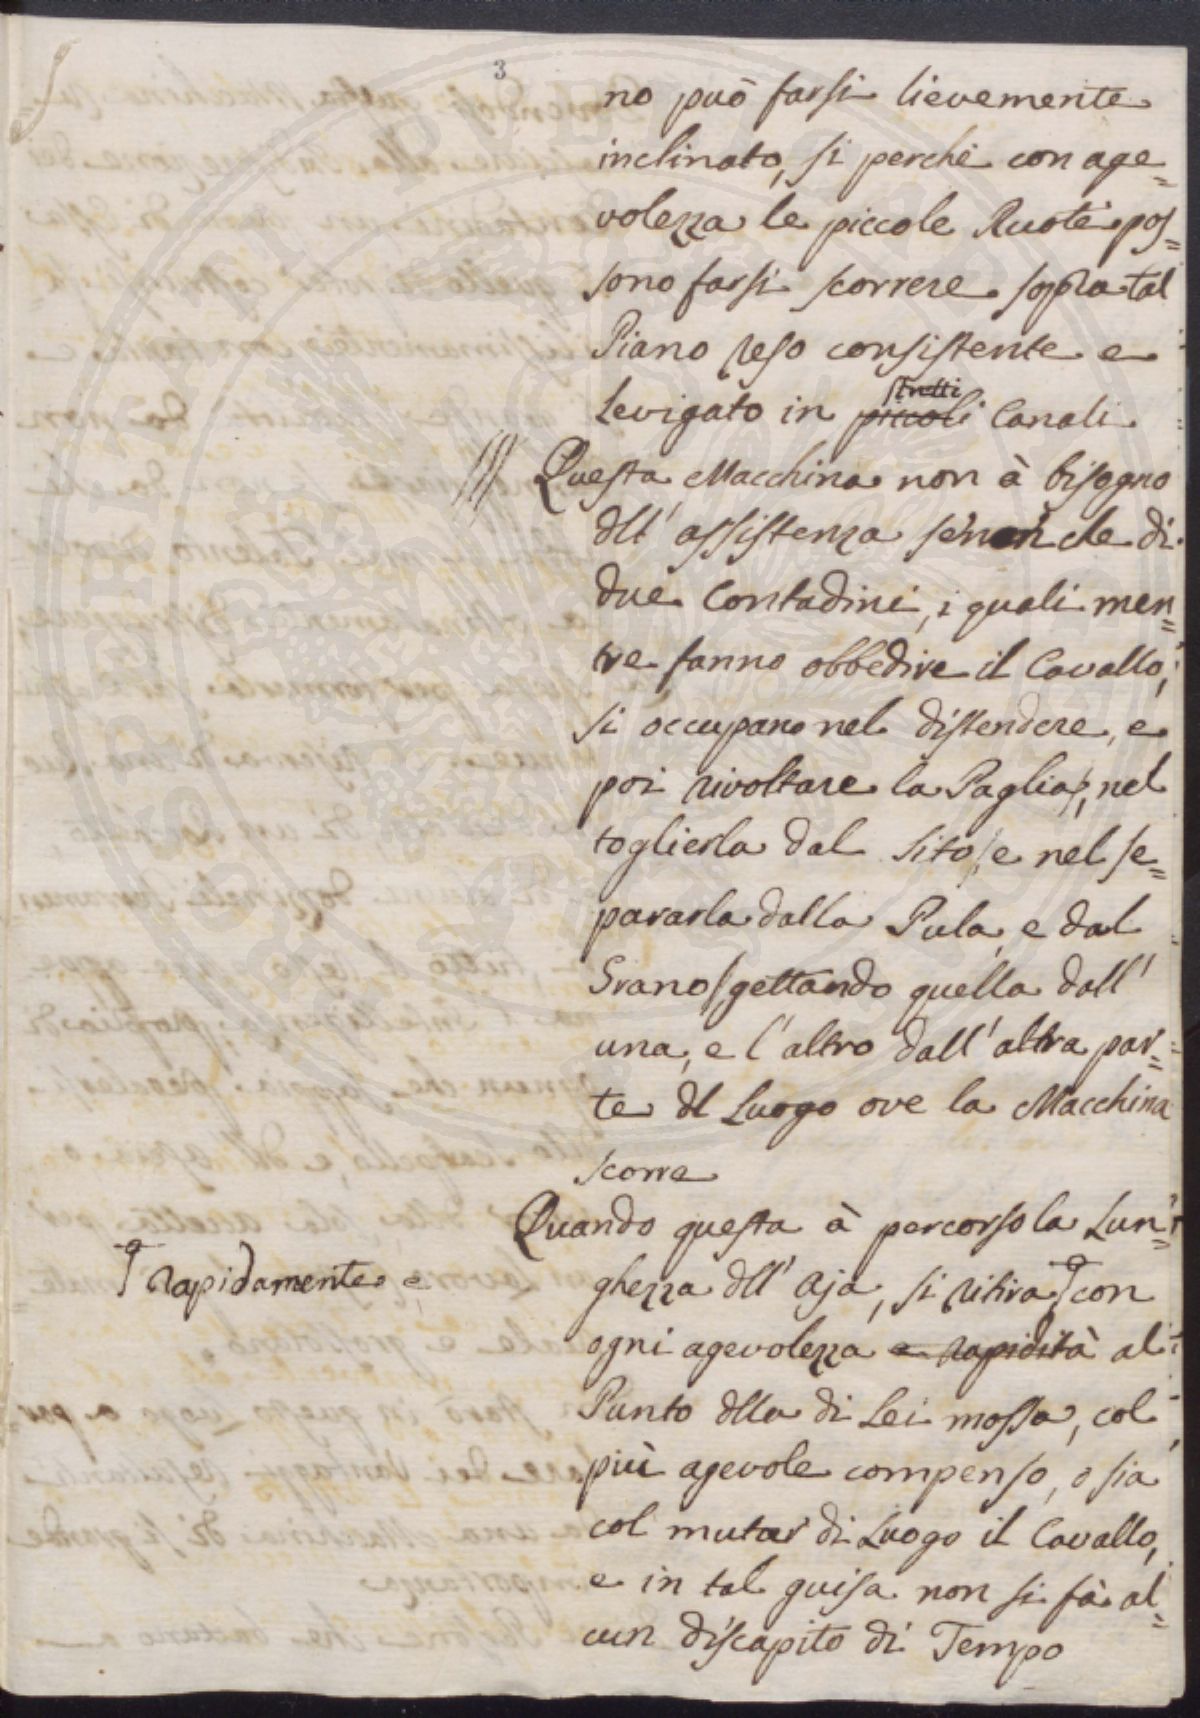 3
no può farsi lievemente
inclinato, si perchè con age=
volezza le piccole Ruote pos=
sono farsi scorrere sopra tal
Piano reso consistente e
stretti
Levigato in piccoli Canali
Questa Macchina non à bisogno
dll' assistenza se non che di
due Contadini, i quali men=
tre fanno obbedire il Cavallo,
si occupano nel distendere, e
poi rivoltare la Paglia, nel
toglierla dal sito, e nel se=
pararla dalla Pula, e dal
Grano, gettando quella dall'
una, e l'altro dall'altra par=
te dl Luogo ove la Macchina
scorre
Quando questa à percorso la Lun=
ghezza dll' Aja, si ritira con
rapidamente e
ogni agevolezza e rapidità al
Punto dlla di Lei mossa, col
più agevole compenso, o sia
col mutar di Luogo il Cavallo,
e in tal guisa non si fà al=
cun discapito di Tempo